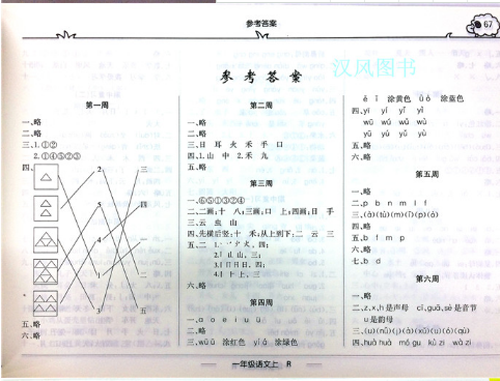 参考答案
67
参考答案
汉风图书
第一周
一、略
二、略
三、1.①②
2.①④⑤②③
四、
2
三
5
四
4
一
1
二
3
五
五、略
六、略
第二周
一、略
二、略
三、日 耳 火 禾 手 口
四、1.山 中 2.禾 九
五、略
第三周
一、⑥⑤①③②④
二、二画:十 八;三画:口 上;四画:日 手
三、云 虫 山
四、先横后竖:十 禾;从上到下:二 云 三
六、略
第四周
一、ɑ o e i u ü
二、略
涂红色
涂绿色
涂黄色
涂蓝色
四、yī yí yǐ yì
wū wú wǔ wù
yū yú yǔ yù
五、略
六、略
第五周
一、略
二、p b n m l f
四、略
五、b f m p
六、略
七、b d
第六周
一、略
二、z、x、h是声母 cī、guā、sè是音节
u是韵母
一年级语文上 R